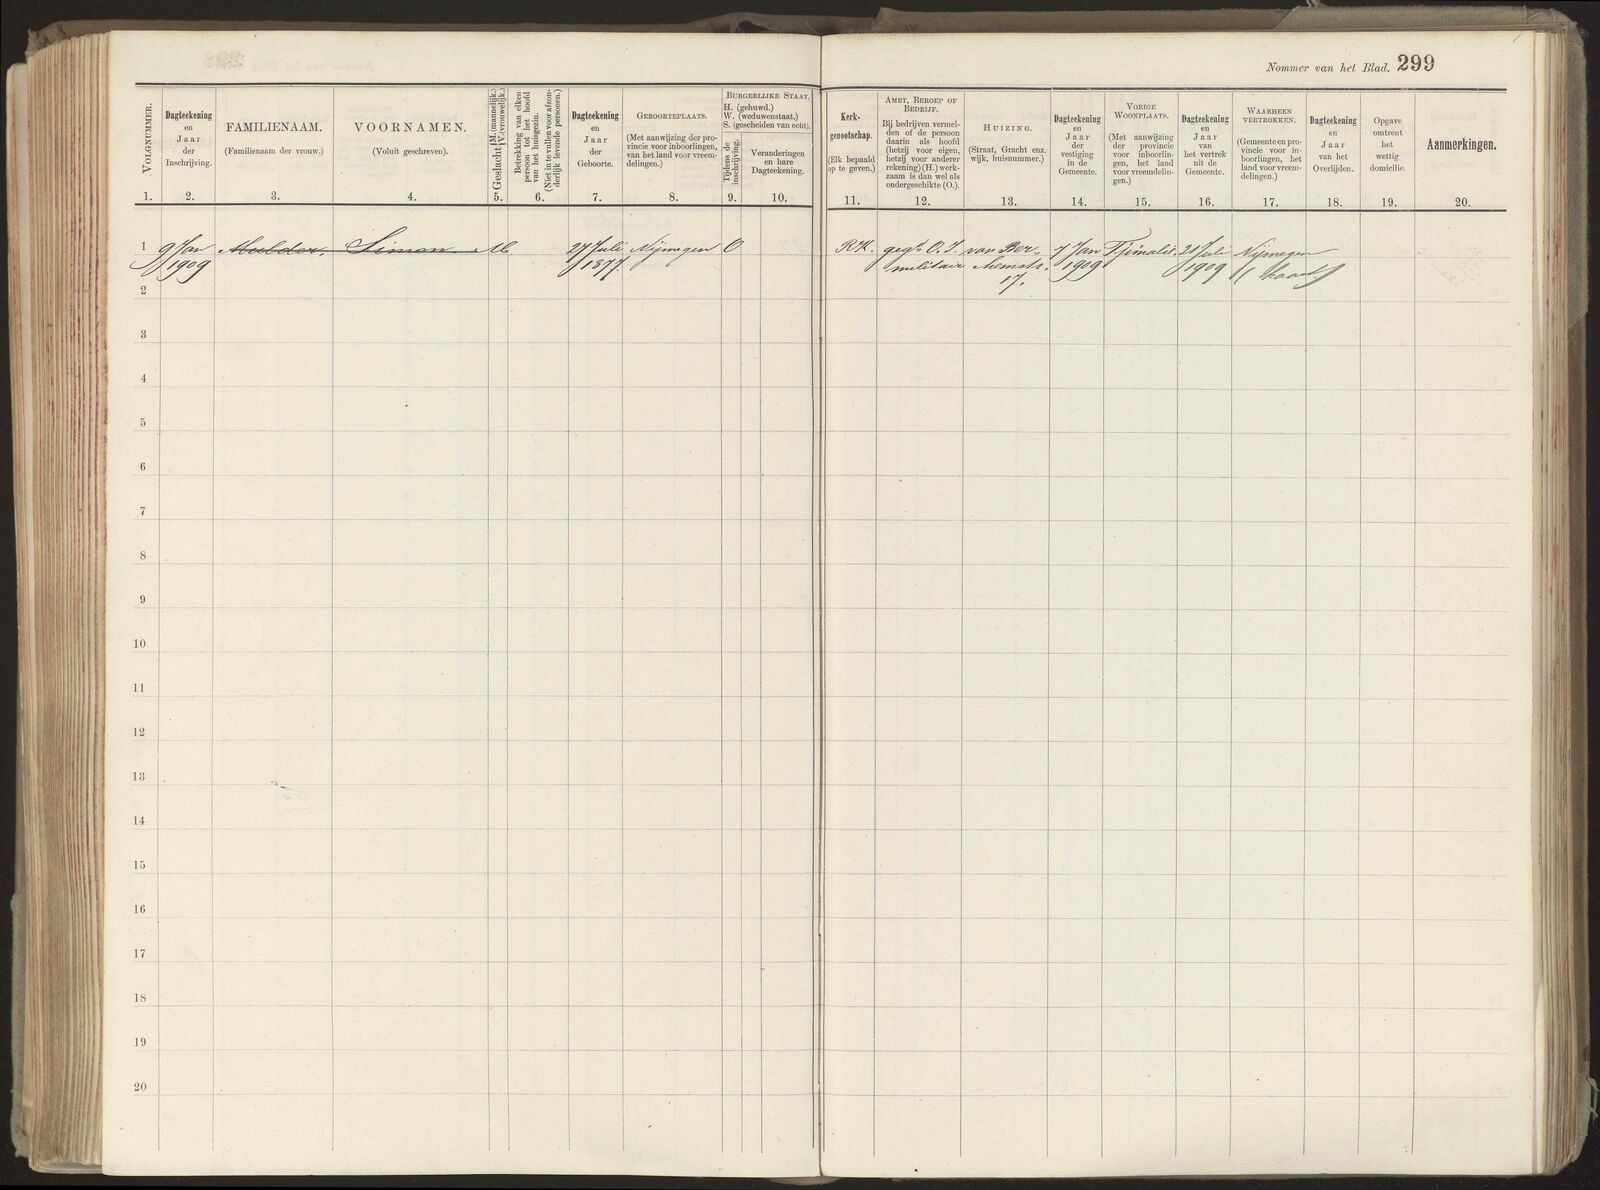 Nommer van het Blad. 299
VOLGNUMMER.
1.
Dagteekening
en
Jaar
der
Inschrijving.
2.
FAMILIENAAM.
(Familienaam der vrouw.)
3.
VOORNAMEN.
(Voluit geschreven).
4.
Geslacht M. (mannelijk.) V. (vrouwelijk.)
5.
Betrekking van elken
persoon tot het hoofd
van het huisgezin.
(Niet in te vullen voor afzon-
derlijk levende personen.)
6.
Dagteekening
en
Jaar
der
Geboorte.
7.
GEBOORTEPLAATS.
(Met aanwijzing der pro-
vincie voor inboorlingen,
van het land voor vreem-
delingen.)
8.
BURGERLIJKE STAAT.
H. (gehuwd.)
W. (weduwenstaat.)
S. (gescheiden van echt).
Tijdens de
inschrijving.
9.
Veranderingen
en hare
Dagteekening.
10.
Kerk-
genootschap.
(Elk bepaald
op te geven.)
11.
AMBT, BEROEP OF
BEDRIJF.
Bij bedrijven vermel-
den of de persoon
daarin als hoofd
(hetzij voor eigen,
hetzij voor anderer
rekening) (H.) werk-
zaam is dan wel als
ondergeschikte (O.).
12.
HUIZING.
(Straat, Gracht enz.
wijk, huisnummer.)
13.
Dagteekening
en
Jaar
der
vestiging
in de
Gemeente.
14.
VORIGE
WOONPLAATS.
(Met aanwijzing
der provincie
voor inboorlin-
gen, het land
voor vreemdelin-
gen.)
15.
Dagteekening
en
Jaar
van
het vertrek
uit de
Gemeente.
16.
WAARHEEN
VERTROKKEN.
(Gemeente en pro-
vincie voor in-
boorlingen, het
land voor vreem-
delingen.)
17.
Dagteekening
en
Jaar
van het
Overlijden.
18.
Opgave
omtrent
het
wettig
domicilie.
19.
Aanmerkingen.
20.
1 9 Jan Mulder, Simon M 27 Juli Nijmegen O R.K. geg. O.I. van Ber- 7 Jan Tjimahi. 20 Juli Nijmegen
1909 1877. militair 1909 1909
17.
2
3
4
5
6
7
8
9
10
11
12
13
14
15
16
17
18
19
20